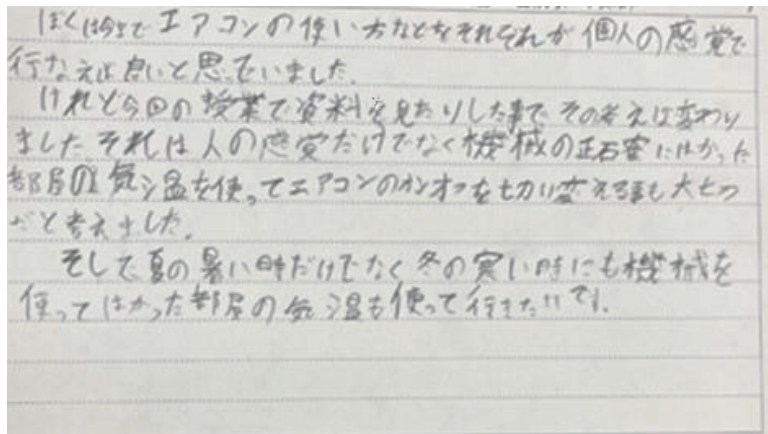 ぼくは今までエアコンの使い方などをそれぞれが個人の感覚で
行なえば良いと思っていました。
けれど今回の授業で資料を見たりした事でその考えは変わり
ました。それは人の感覚だけでなく機械の正確にはかった
部屋の気温を使ってエアコンのオンオフを切り変える事も大切
だと考えました。
そして、夏の暑い時だけでなく冬の寒い時にも機械を
使ってはかった部屋の気温も使って行きたいです。